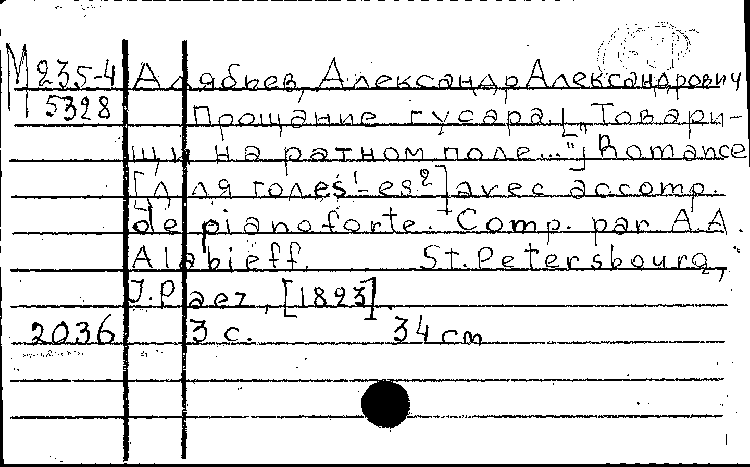 М 235-4 Алябьев, Александр Александрович
5328 Прощание гусара. [„Товари-
щи на ратном поле..."] Romance
[для голоса es¹-es²] avec accomp.
de pianoforte. Comp. par A.A.
Alabieff. St. Petersbourg,
J. Paez, [1823].
2036 3 с. 34 cm